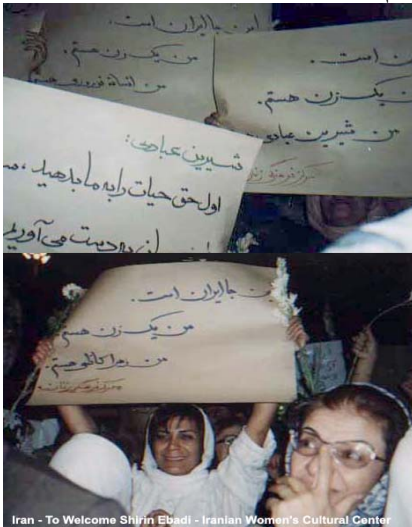 این جا ایران است.
من یک زن هستم.
من افسانه نوروزی هستم
ن است.
یک زن هستم.
من شیرین عبادی
مرکز فرهنگی زنان
شیرین عبادی:
اول حق حیات را به ما بدهید،
به دست می‌آوریم
جا ایران است.
من یک زن هستم.
من زهرا کاظمی هستم.
مرکز فرهنگی زنان
Iran - To Welcome Shirin Ebadi - Iranian Women's Cultural Center